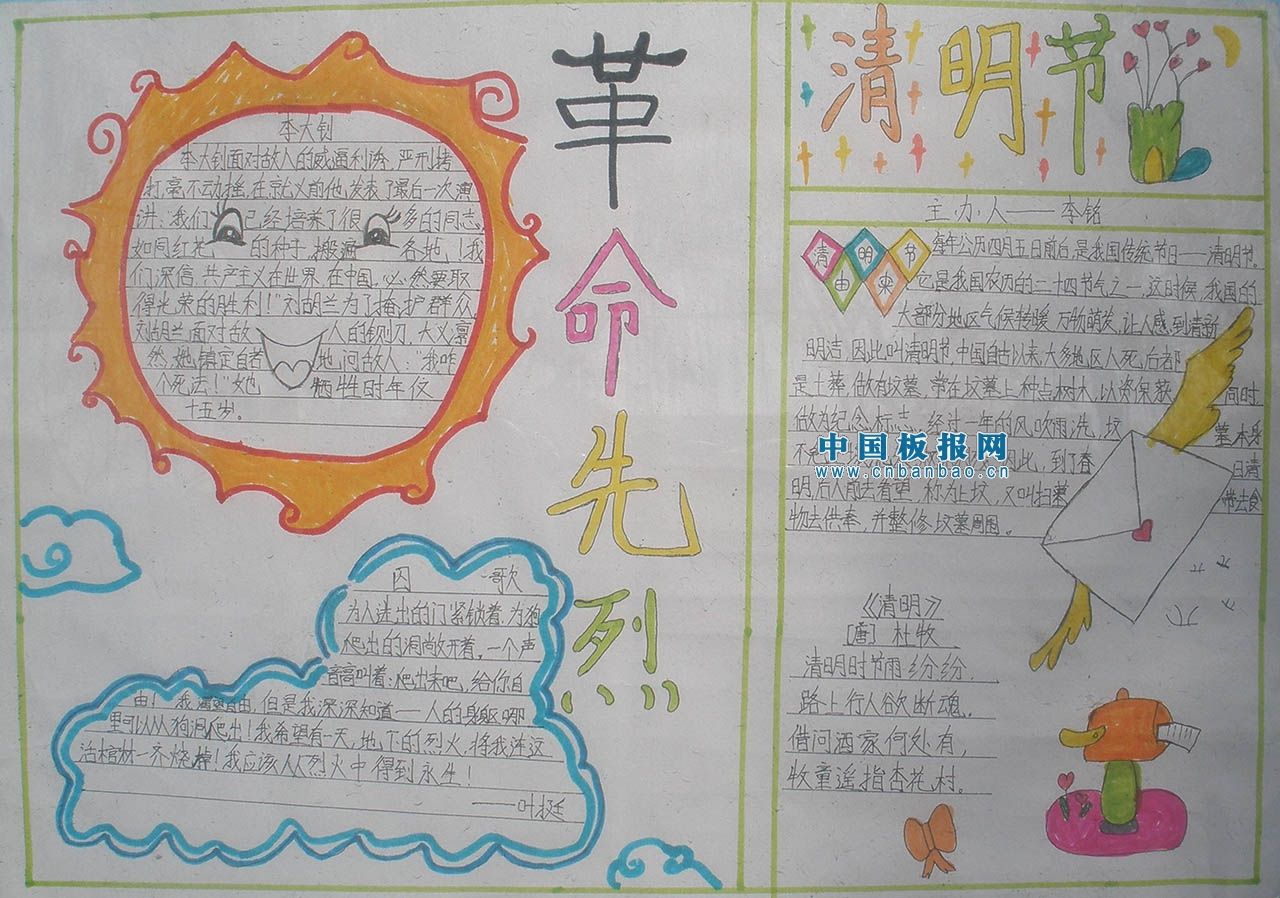 革命先烈
李大钊
李大钊面对敌人的威逼利诱、严刑拷
打毫不动摇,在就义前他,发表了最后一次演
讲:我们已经培养了很多的同志,
如同红花的种子,搬遍各地,!我
们深信,共产主义在世界,在中国,必然要取
得光荣的胜利!"刘胡兰为了掩护群众,
刘胡兰面对敌人的铡刀,大义凛
然,她镇定自若地,问敌人:"我咋
个死法!"她牺牲时年仅
十五岁。
囚歌
为人进出的门紧锁着,为狗
爬出的洞尚敞开着,一个声
音高叫着:爬出来吧,给你自
由!我渴望自由,但是我深深知道——人的身躯哪
里可以从狗洞爬出!我希望有一天,地下的烈火,将我连这
活棺材一齐烧掉!我应该从烈火中得到永生!
——叶挺
清明节
主办人——李铭
清明节
由来
每年公历四月五日前后,是我国传统节日——清明节。
它是我国农历的二十四节气之一,这时候,我国的
大部分地区气候转暖,万物萌发,让人感到清新
明洁,因此叫清明节,中国自古以来,大多地区人死后都
是土葬,做有坟墓,常在坟墓上种点树木,以资保获,同时
做为纪念标志。经过一年的风吹雨洗,坟墓本身
不 因此,到了春日清
明,后人前去看望,称为上坟,又叫扫墓 带去食
物去供奉,并整修坟墓周围。
《清明》
[唐] 杜牧
清明时节雨纷纷,
路上行人欲断魂。
借问酒家何处有,
牧童遥指杏花村。
中国板报网
www.cnbanbao.cn